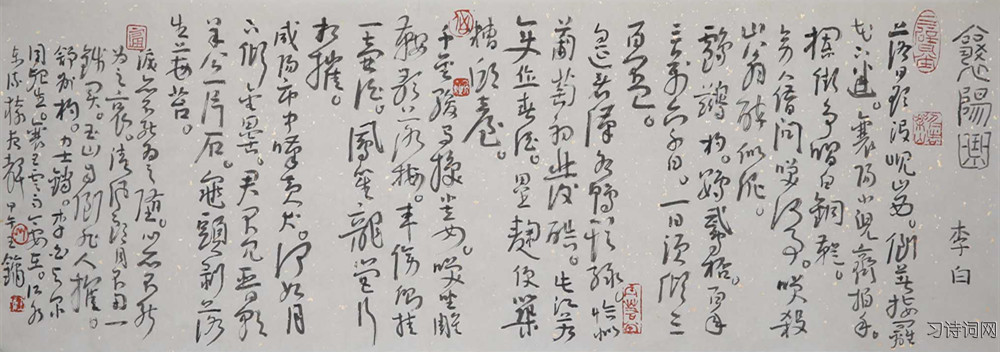 襄陽曲
李白
落日欲没峴山西。倒著接䍦
花下迷。襄陽小兒齊拍手。
攔街爭唱白銅鞮。
旁人借問笑何事。笑殺
山翁醉似泥。
鸕鶿杓。鸚鵡杯。百年
三萬六千日。一日須傾三
百杯。
遙看漢水鴨頭綠。恰似
葡萄初醱醅。此江若
變作春酒。壘麴便築
糟邱臺。
千金駿馬換小妾。笑坐雕
鞍歌落梅。車傍側挂
一壺酒。鳳笙龍管行
相催。
咸陽市中嘆黃犬。何如月
下傾金罍。君不見晉朝
羊公一片石。龜頭剝落
生莓苔。
淚亦不能為之墮。心亦不能
為之哀。清風朗月不用一
錢買。玉山自倒非人推。
舒州杓。力士鐺。李白與爾
同死生。襄王雲雨今安在。江水
東流猿夜聲
习诗词网